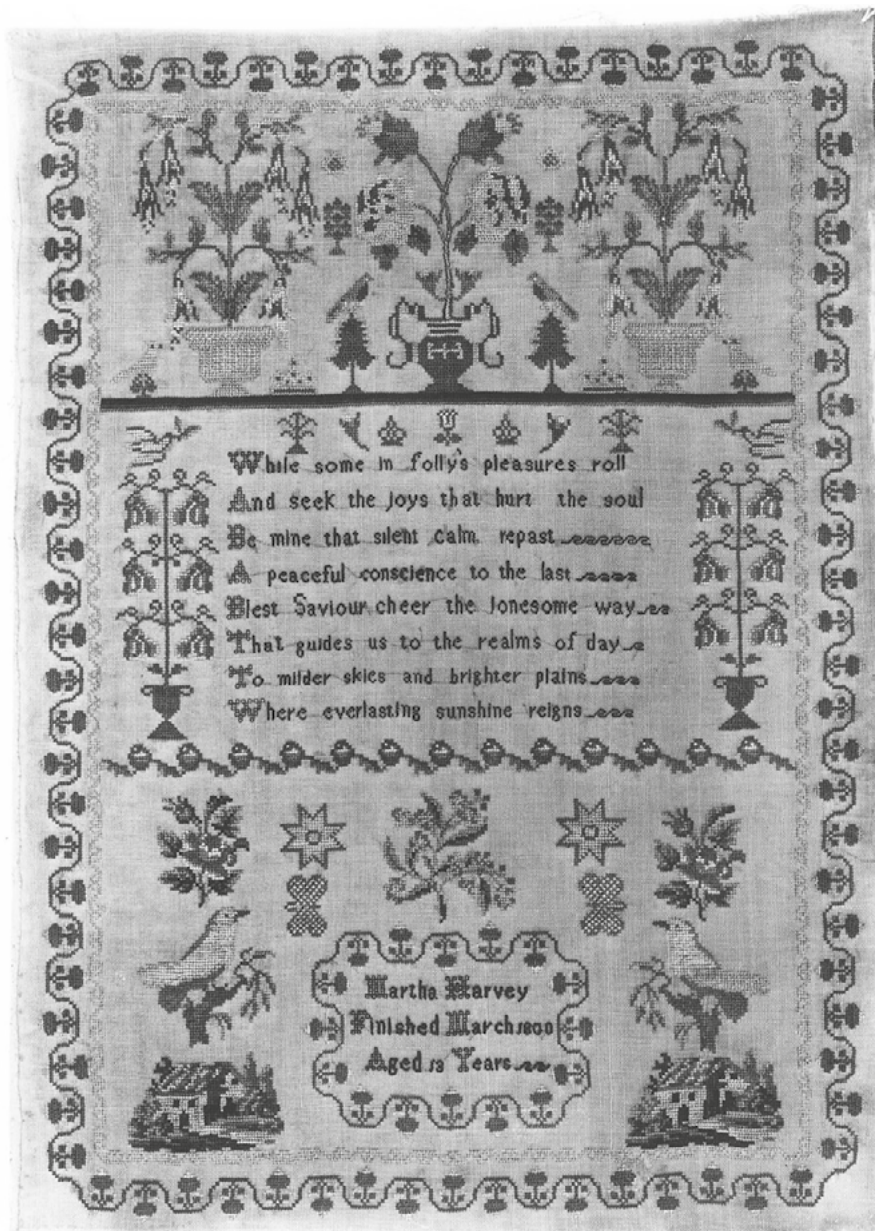 While some in folly's pleasures roll
And seek the joys that hurt the soul
Be mine that silent calm repast
A peaceful conscience to the last
Blest Saviour cheer the lonesome way
That guides us to the realms of day
To milder skies and brighter plains
Where everlasting sunshine reigns
Martha Harvey
Finished March
Aged Years